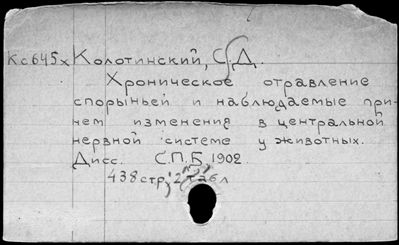 Кс645х Колотинский, С.Д.
Хроническое отравление
спорыньей и наблюдаемые при
нем изменения в центральной
нервной системе у животных.
Дисс. С.П.Б 1902.
438стр, 2 табл